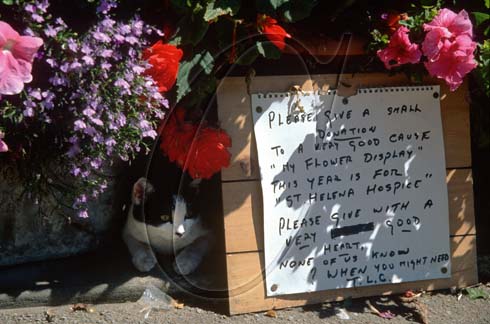 PLEASE GIVE A SMALL
DONATION
TO A VERY GOOD CAUSE
"MY FLOWER DISPLAY"
THIS YEAR IS FOR
"ST HELENA HOSPICE"
PLEASE GIVE WITH A
VERY GOOD
HEART.
NONE OF US KNOW
? WHEN YOU MIGHT NEED
T.L.C.